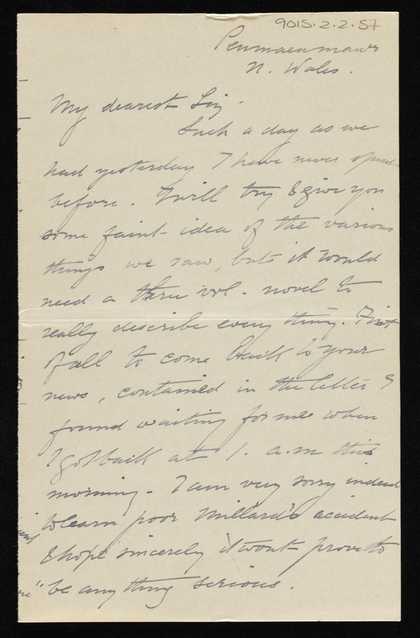 9015.2.2.57
Penmaenmawr
N. Wales.
My dearest Liz.
Such a day as we
had yesterday I have never spent
before. I will try & give you
some faint idea of the various
things we saw, but it would
need a three vol. novel to
really describe every thing. First
of all to come back to your
news, contained in the letter I
found waiting for me when
I got back at 1. a.m this
morning. I am very sorry indeed
to learn poor Millard's accident
& hope sincerely it wont prove to
be any thing serious.